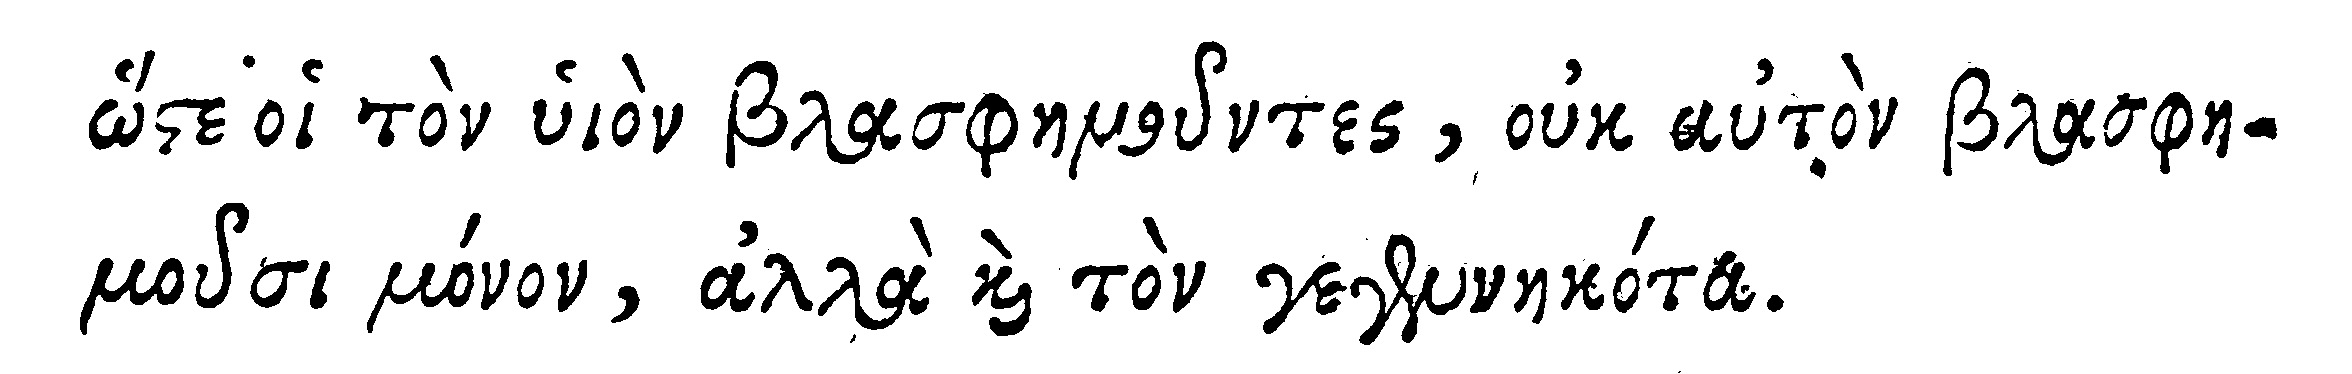 ὥστε οἱ τὸν ὑιὸν βλασφημοῦντες, οὐκ αὐτὸν βλασφη-
μοῦσι μόνον, ἀλλὰ ϗ̀ τὸν γεγεννηκότα.